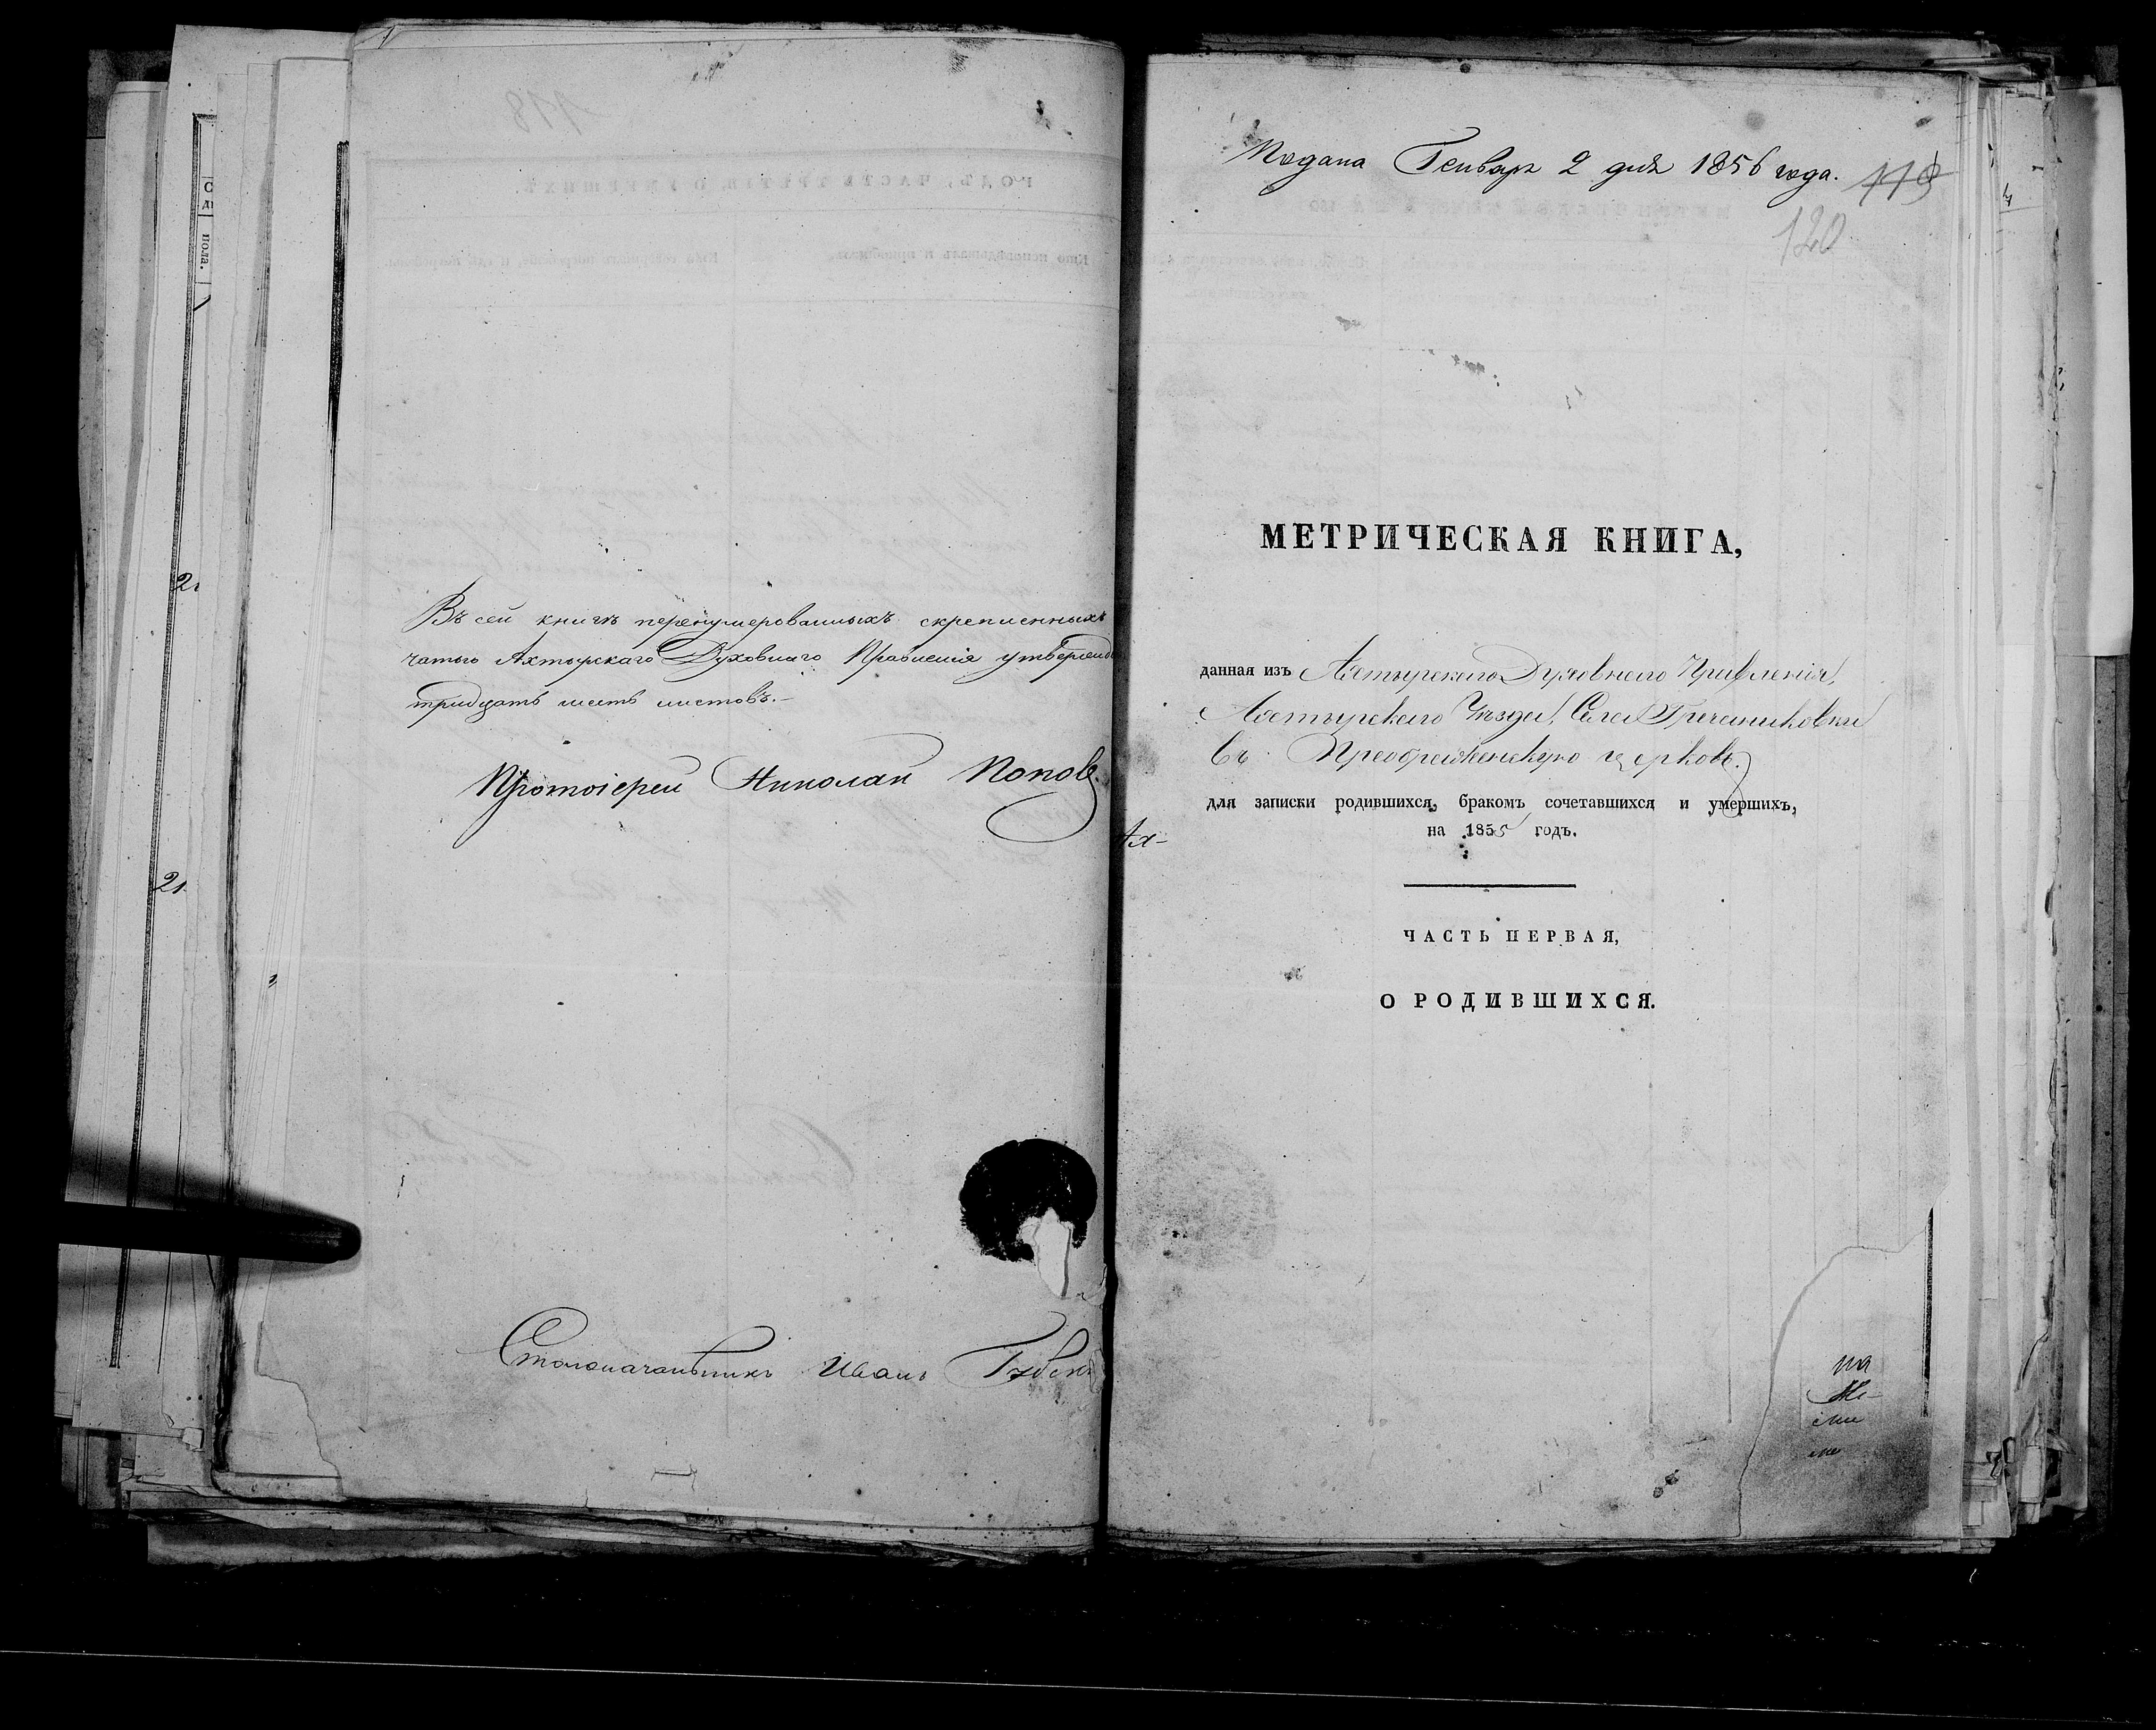 Въ сей книгѣ перенумерованныхъ скрепленныхъ
чатью Ахтырскаго Духовнаго Правленія утвержд
тридцать шесть листовъ.-
Протоіерей Николай Поповъ
Столоначальникъ Иванъ
Подана Генваря 2 дня 1856 года. 119
120
МЕТРИЧЕСКАЯ КНИГА,
данная изъ Ахтырскаго Духовнаго Правленія,
Ахтырскаго Уѣзда, Села Гречаниковки
въ Преображенскую церковь.
для записки родившихся, бракомъ сочетавшихся и умершихъ,
на 1855 годъ.
ЧАСТЬ ПЕРВАЯ,
О РОДИВШИХСЯ.